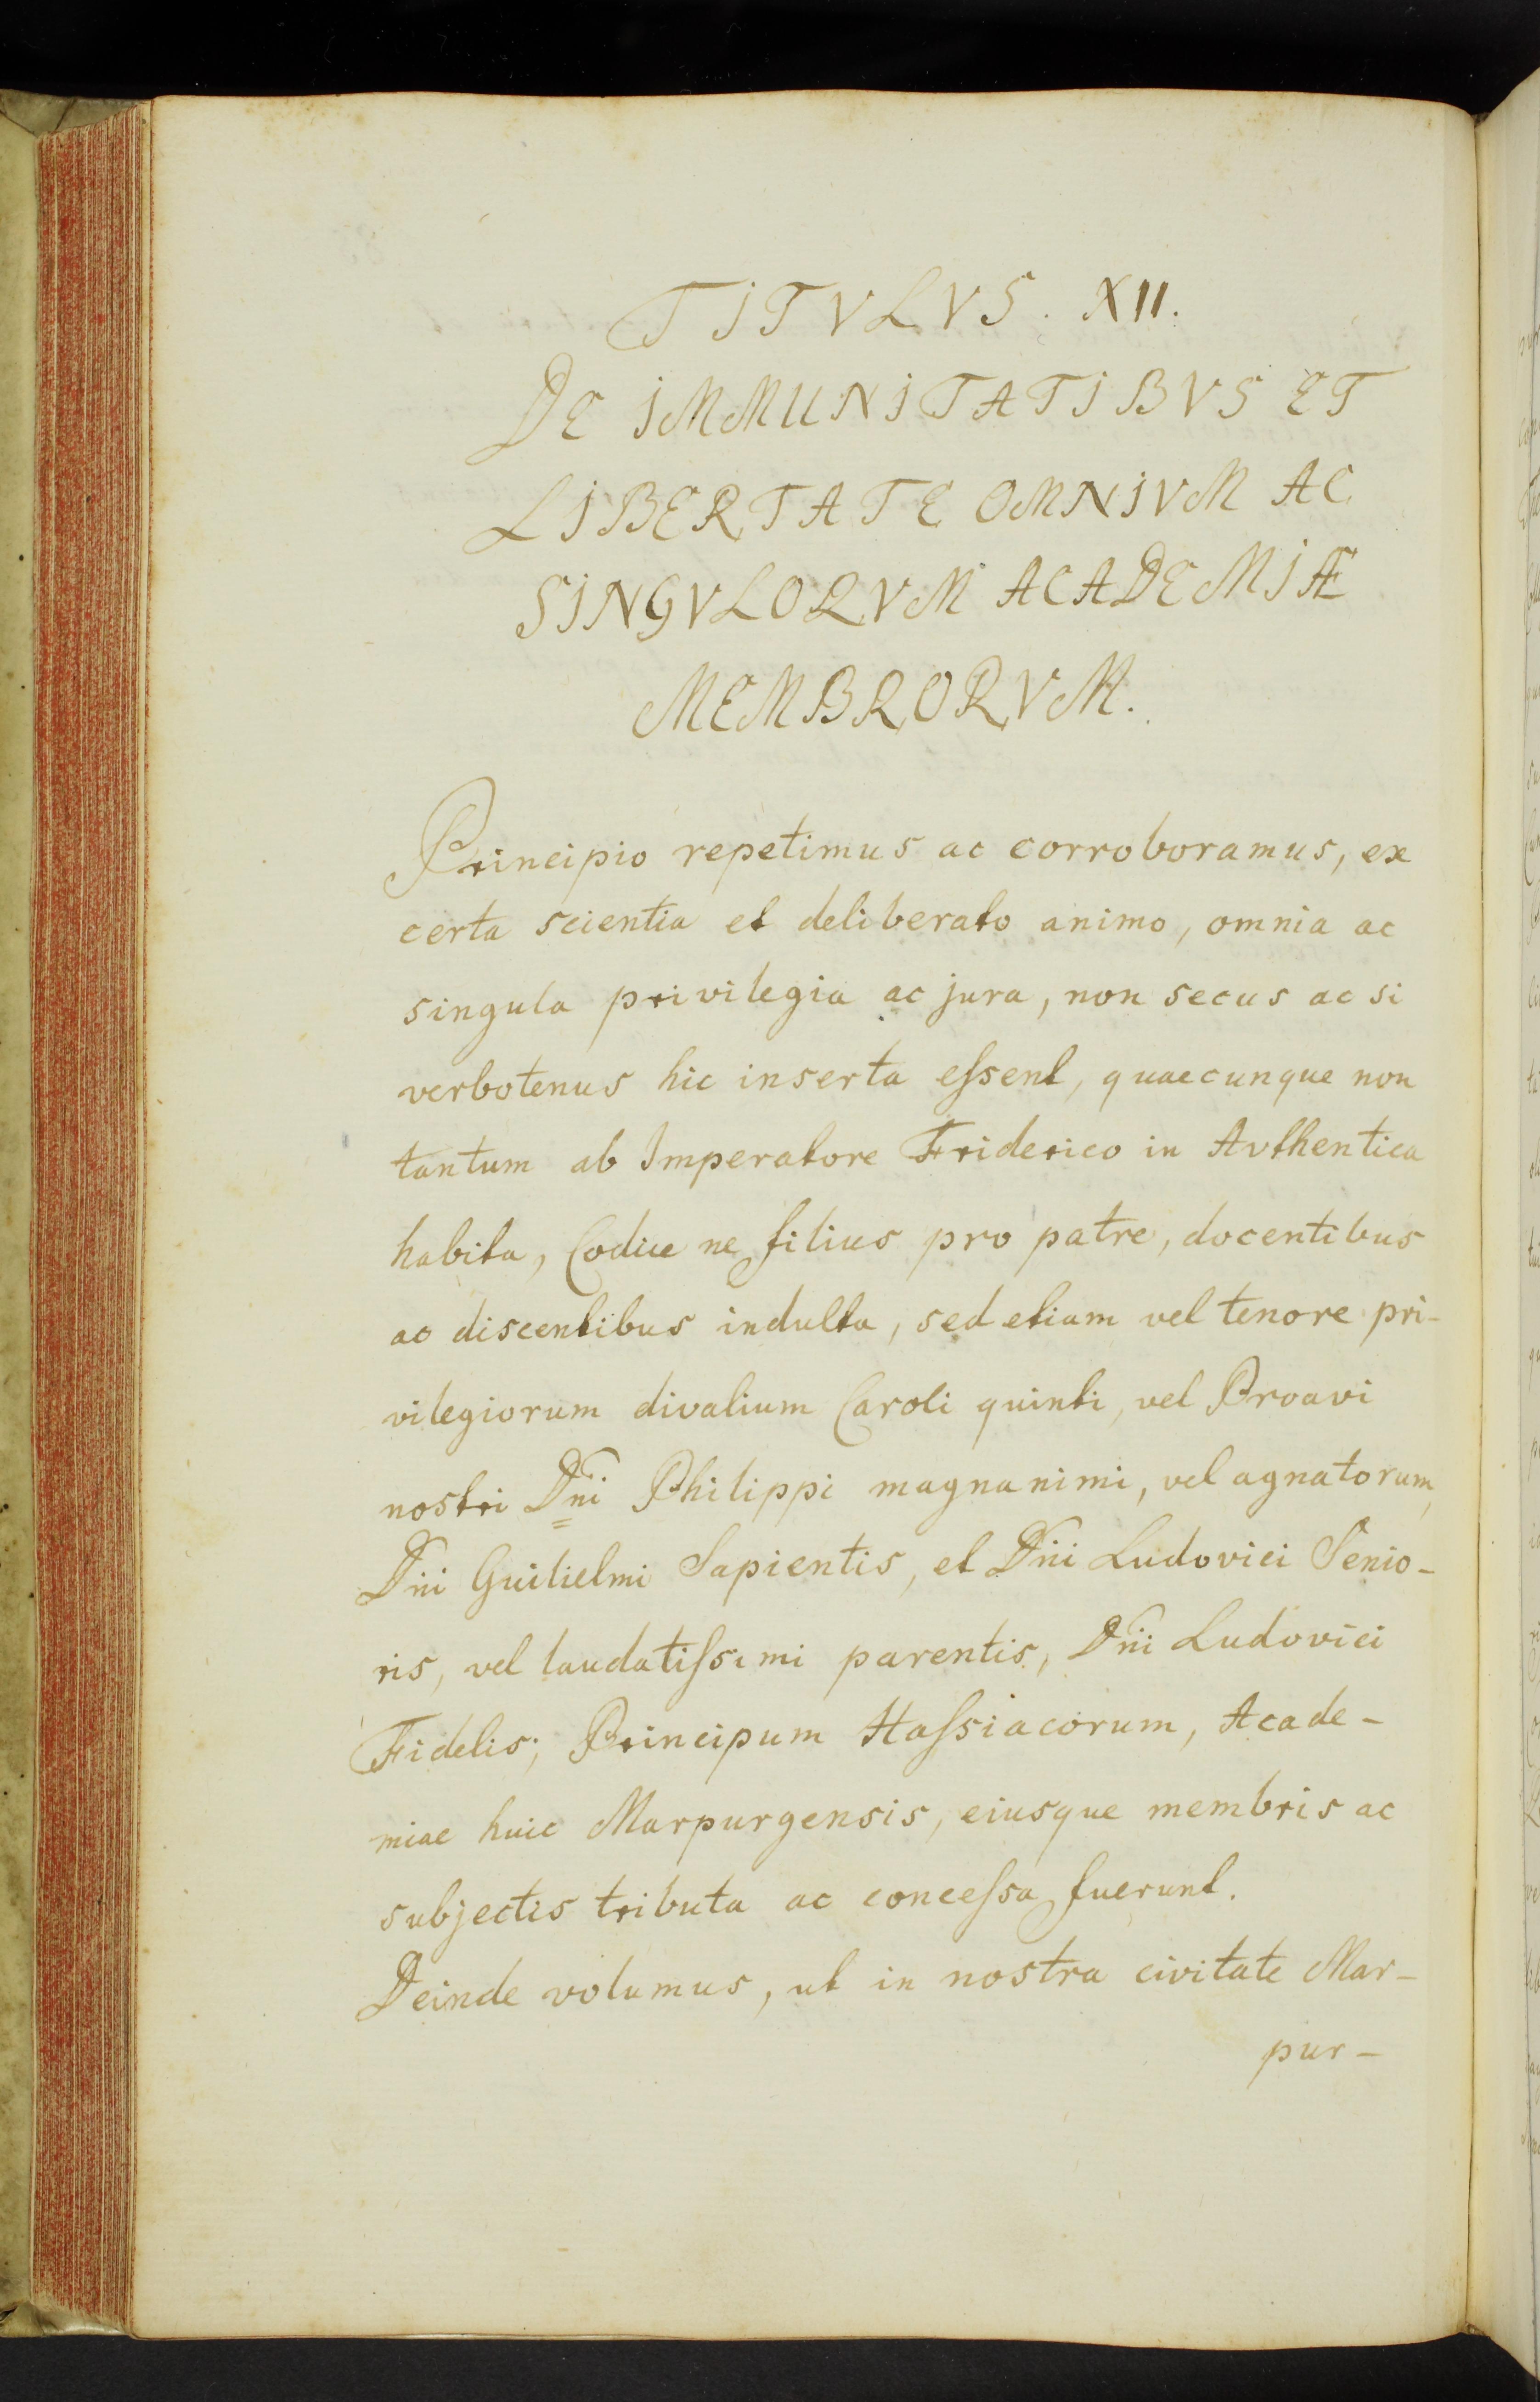 TITVLVS. XII.
DE IMMUNITATIBVS ET
LIBERTATE OMNIVM AC
SINGVLORVM ACADEMIÆ
MEMBRORVM.
Principio repetimus ac corroboramus, ex
certa scientia et deliberato animo, omnia ac
singula privilegia ac jura, non secus ac si
verbotenus hic inserta eſsent, quaecunque non
tantum ab Imperatore Friderico in Avthentica
habita, Codice ne filius pro patre, docentibus
ac discentibus indulta, sed etiam vel tenore pri-
vilegiorum divalium Caroli quinti, vel Proavi
nostri Dn̄i Philippi magnanimi, vel agnatorum,
Dn̄i Guilielmi Sapientis, et Dn̄i Ludovici Senio-
ris, vel laudatiſsimi parentis, Dn̄i Ludovici
Fidelis; Principum Haſsiacorum, Acade-
miae huic Marpurgensis, eiusque membris ac
subjectis tributa ac conceſsa fuerunt.
Deinde volumus, ut in nostra civitate Mar-
pur-